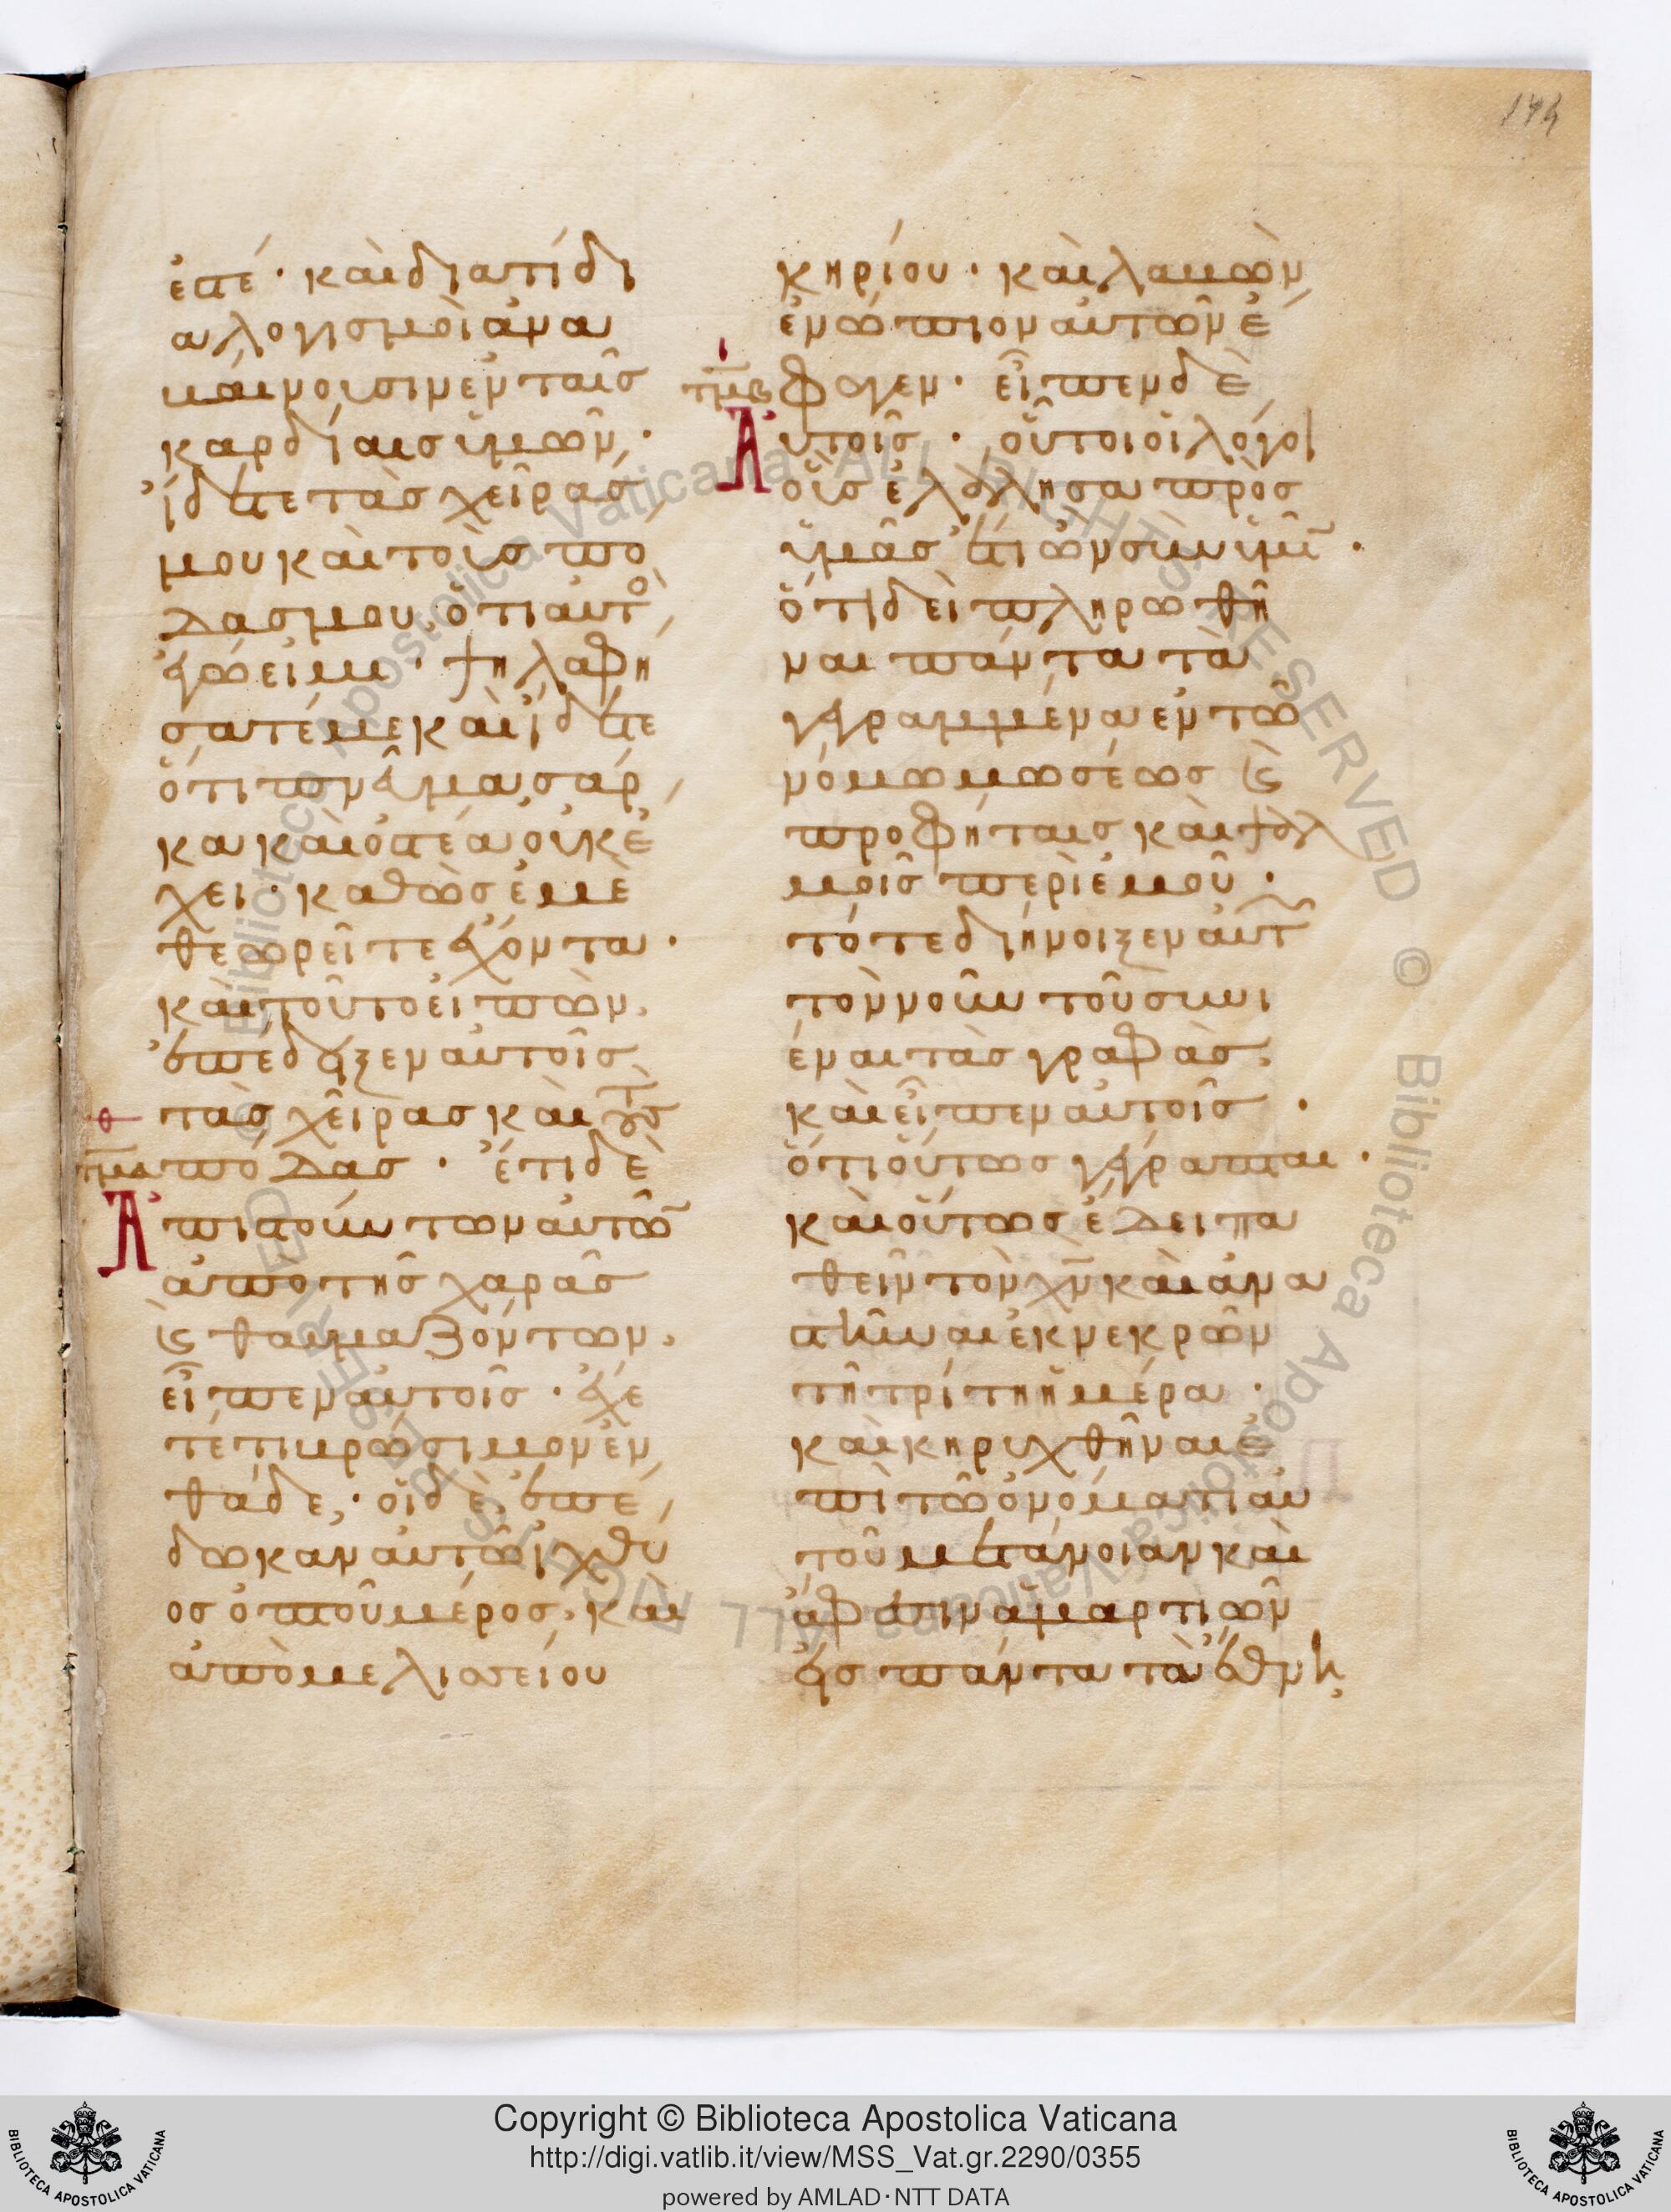 174
ἐστέ· καὶ διατί δι
αλογισμοὶ ἀνα
βαίνουσιν ἐν ταῖς
καρδίαις ὑμῶν·
ἴδετε τὰς χεῖράς
μου καὶ τοὺς πό
δας μου, ὅτι αὐτὸ
ἐγώ εἰμι· ψηλαφή
σατέ με καὶ ἴδετε
ὅτι πνεῦμα σάρ
κα καὶ ὀστέα οὐκ ἔ
χει· καθὼς ἐμὲ
θεωρεῖτε ἔχοντα·
καὶ τοῦτο εἰπὼν,
ἐπέδειξεν αὐτοῖς
τὰς χεῖρας καὶ τοὺς
τμα πόδας· ἔτι δὲ
Ἀπιστούντων αὐτῶν
ἀπὸ τῆς χαρᾶς
καὶ θαυμαζόντων,
εἶπεν αὐτοῖς· ἔχε
τέ τι βρώσιμον ἐν
θάδε, οἱ δὲ ἐπέ
δωκαν αὐτῷ ἰχθύ
ος ὀπτοῦ μέρος, καὶ
ἀπὸ μελισσείου
κηρίου· καὶ λαβὼν
ἐνώπιον αὐτῶν ἔ
τμβ φαγεν· εἶπεν δὲ
Αὐτοῖς· οὗτοι οἱ λόγοι
οὓς ἐλάλησα πρὸς
ὑμᾶς ἔτι ὢν σὺν ὑμῖν·
ὅτι δεῖ πληρωθῆ
ναι πάντα τὰ
γεγραμμένα ἐν τῶ
νόμω μωσέως καὶ
προφήταις καὶ ψαλ
μοῖς περὶ ἐμοῦ·
τότε διήνοιξεν αὐτῶν
τὸν νοῦν τοῦ συνι
έναι τὰς γραφὰς,
καὶ εἶπεν αὐτοῖς·
ὅτι οὕτως γέγραπται·
καὶ οὕτως ἔδει πα
θεῖν τὸν χν καὶ ἀνα
στῆναι ἐκ νεκρῶν
τῆ τρίτη ἡμέρα·
καὶ κηρυχθῆναι ἐ
πὶ τῶ ὀνόματι αὐ
τοῦ μετάνοιαν καὶ
ἄφεσιν ἁμαρτιῶν
εἰς πάντα τὰ ἔθνη,
Copyright © Biblioteca Apostolica Vaticana
http://digi.vatlib.it/view/MSS_Vat.gr.2290/0355
powered by AMLAD·NTT DATA
BIBLIOTECA APOSTOLICA VATICANA
BIBLIOTECA APOSTOLICA VATICANA